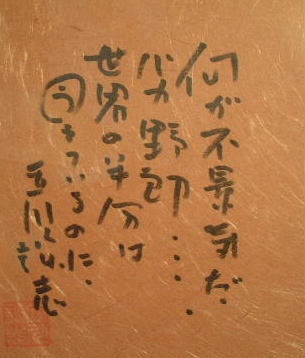 何が不景気だ
バカ野郎・・・・
世界の半分は
うえてるのに・
立川談志